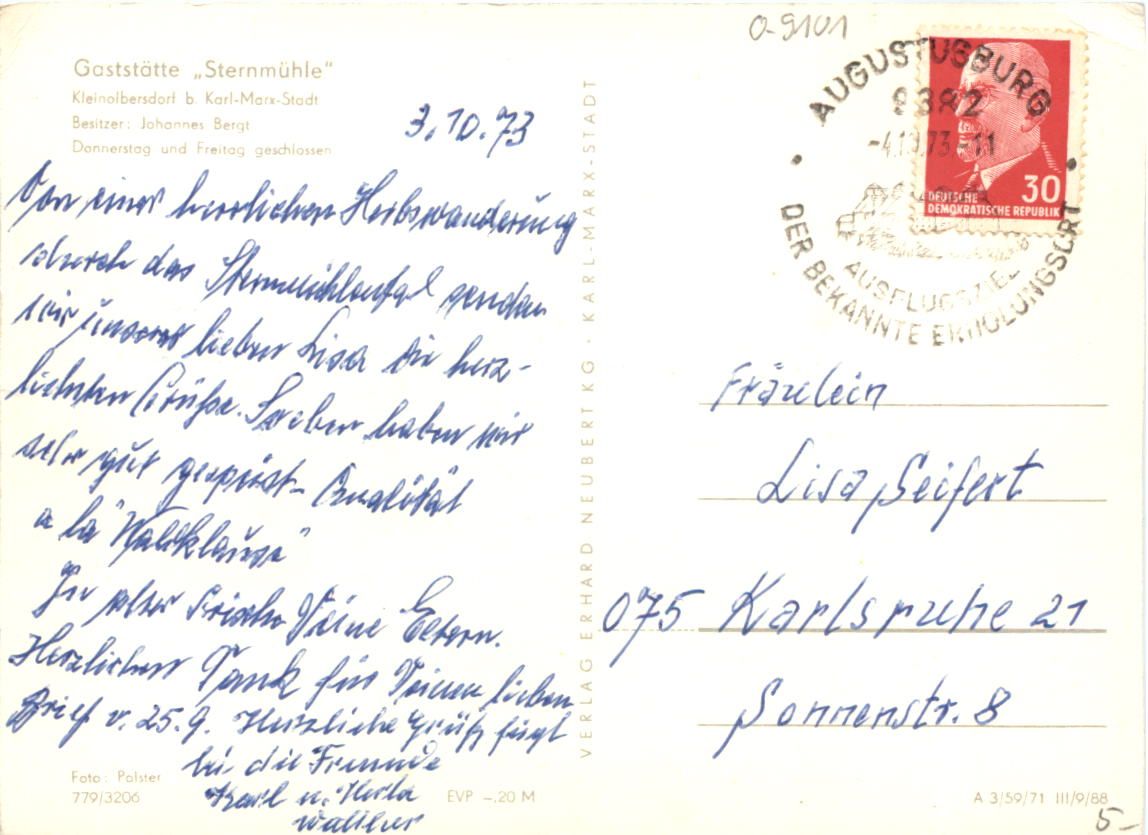 O-9101
Gaststätte „Sternmühle"
Kleinolbersdorf b. Karl-Marx-Stadt
Besitzer: Johannes Bergt
Donnerstag und Freitag geschlossen
3.10.73
Von einer herrlichen Herbstwanderung
durch das Sternmühlental senden
wir unserer lieben Lisa die herz-
lichsten Grüße. Soeben haben wir
sehr gut gespeist - Qualität
a la "Waldklause"
In alter Frische Deine Eltern.
Herzlichen Dank für Deinen lieben
Brief v. 25.9. Herzliche Grüße fügt
bei die Freunde
Karl u. Herta
Walther
Foto: Polster
779/3206
EVP -.20 M
VERLAG ERHARD NEUBERT KG · KARL-MARX-STADT
AUGUSTUSBURG
9382
-4.10.73.-11
AUSFLUGSZIEL
DER BEKANNTE ERHOLUNGSORT
30
DEUTSCHE
DEMOKRATISCHE REPUBLIK
Fräulein
Lisa Seifert
075 Karlsruhe 21
Sonnenstr. 8
A 3/59/71 III/9/88
5-